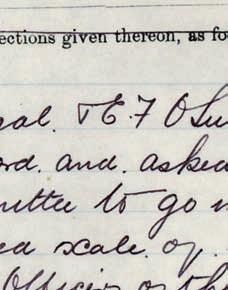 ections given thereon, as fo
eal. & E. 7 O Su
ord. and. asked
mittee to go
ed scale. of.
Officer or th